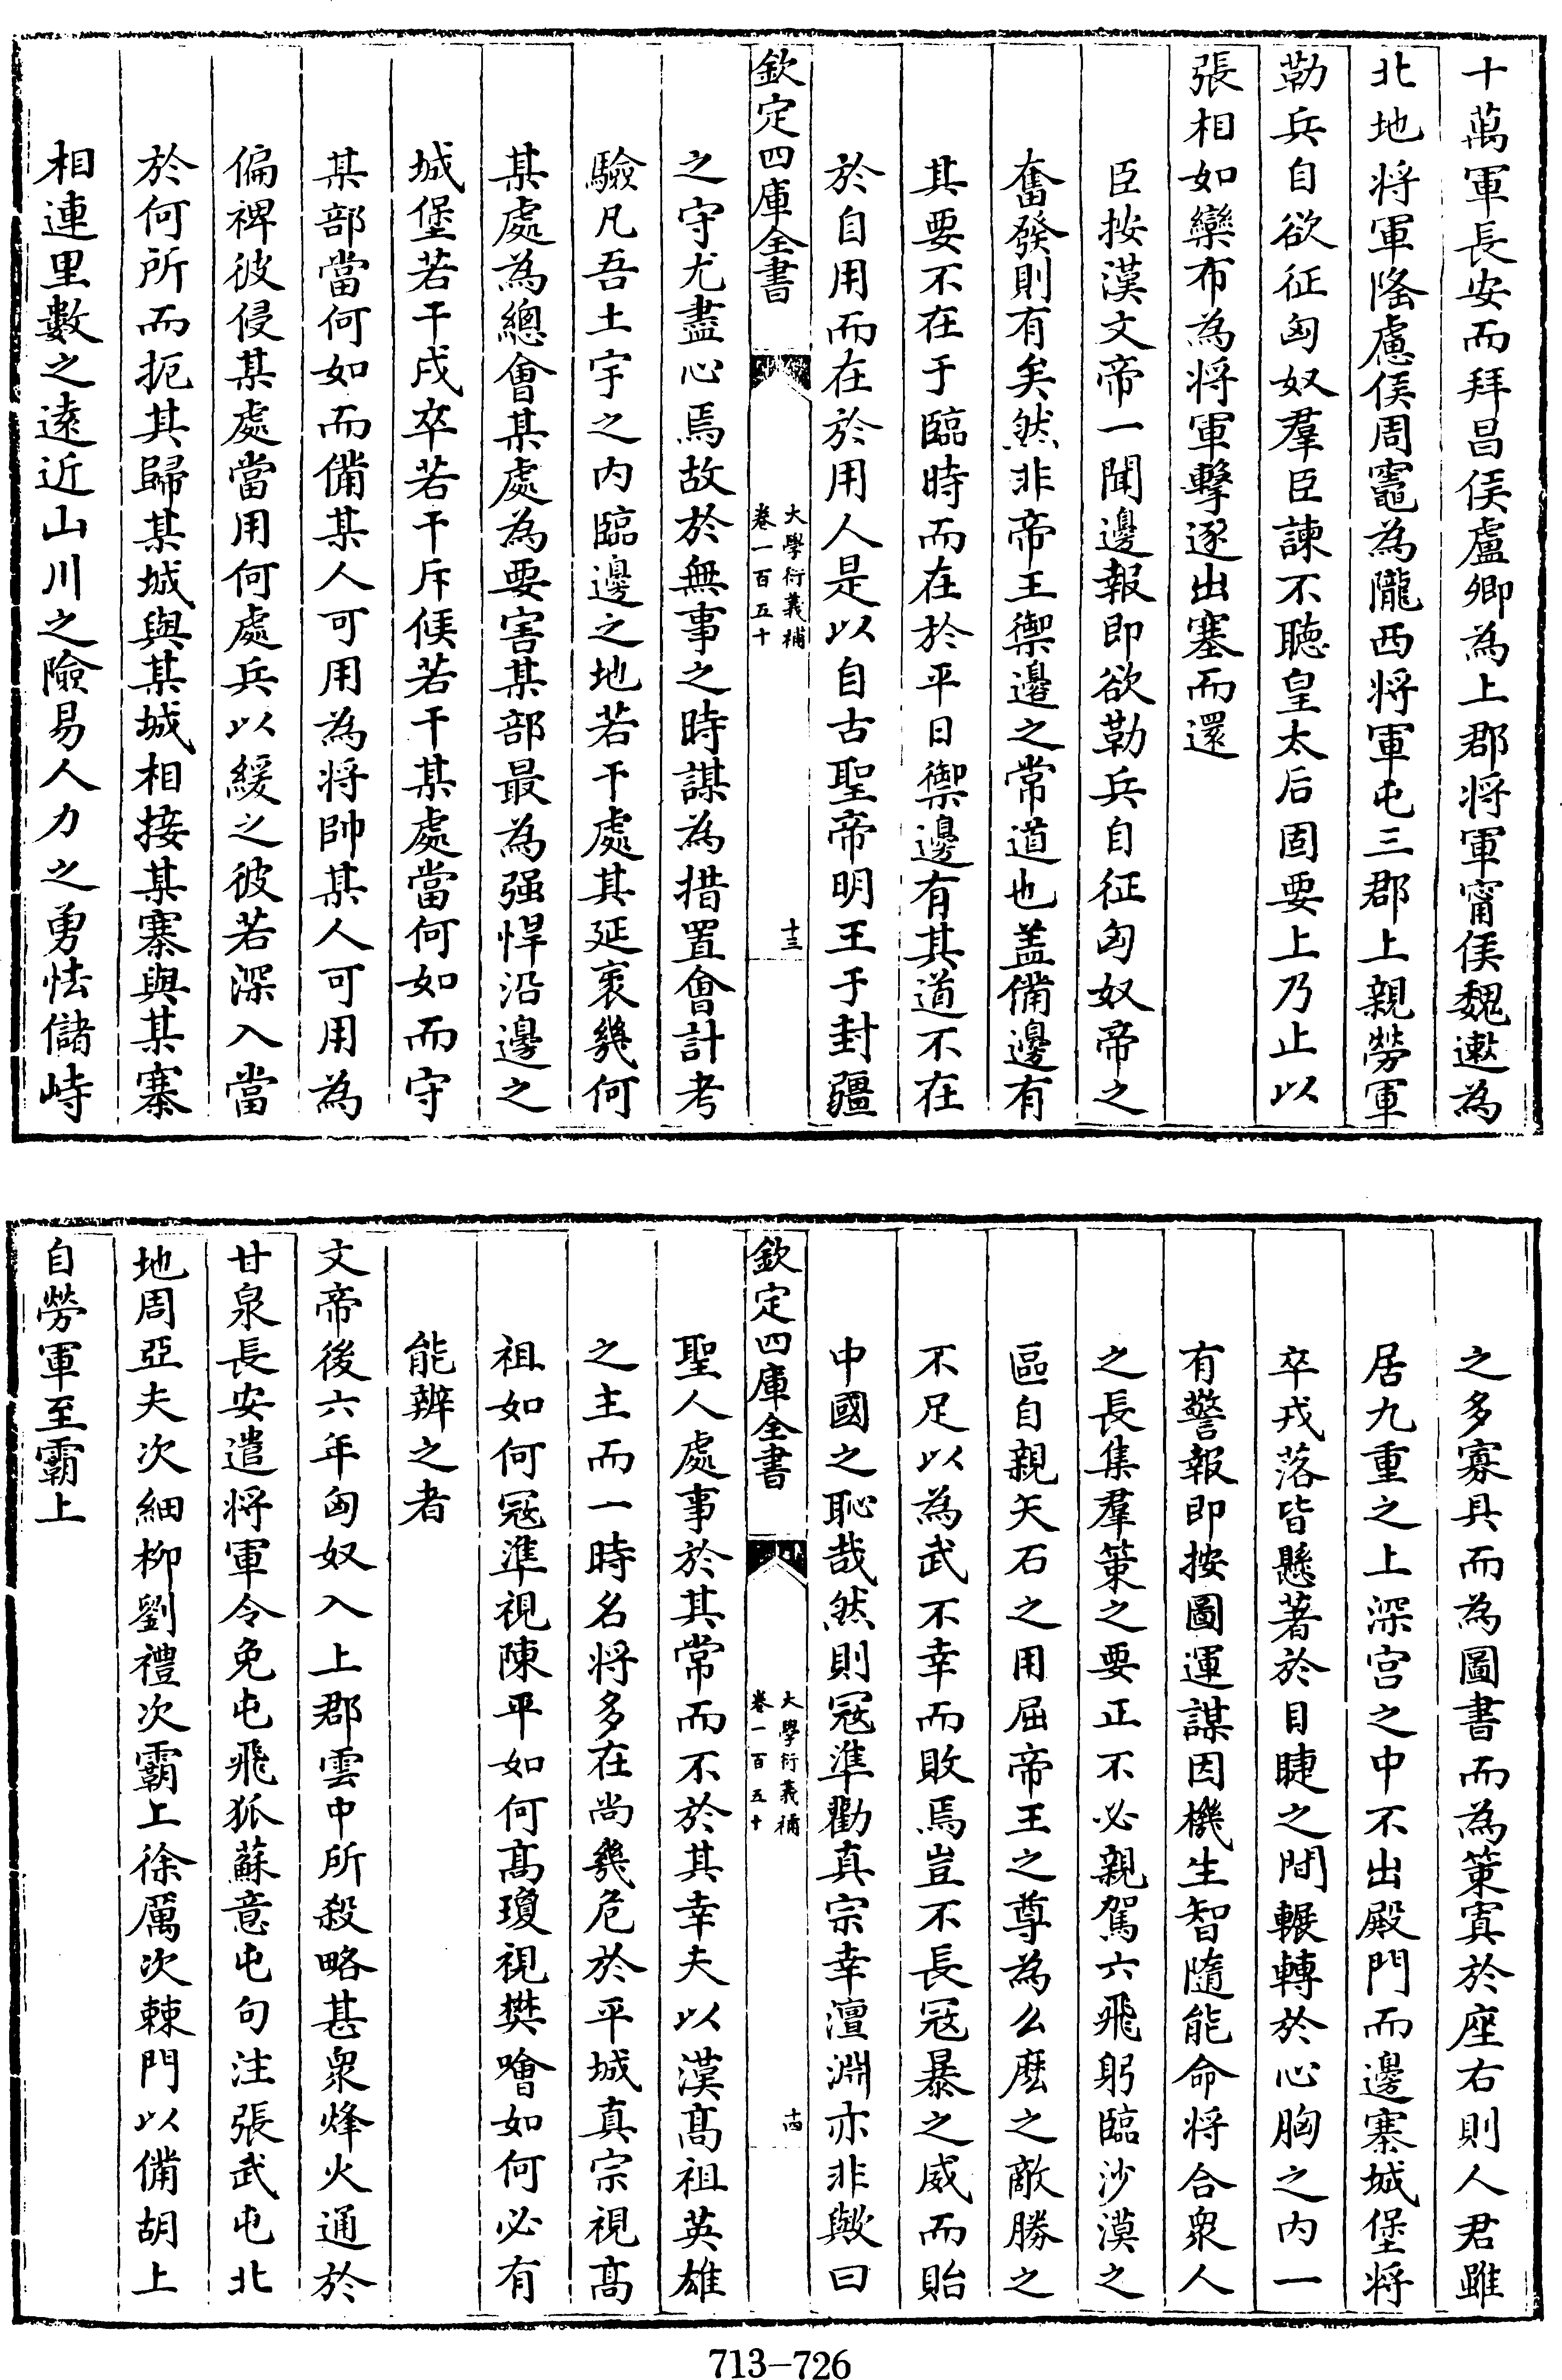 十萬軍長安而拜昌侯盧卿為上郡将軍甯侯魏遬為
北地将軍隆慮侯周竈為隴西将軍屯三郡上親勞軍
勒兵自欲征匈奴羣臣諫不聴皇太后固要上乃止以
張相如欒布為将軍擊逐出塞而還
臣按漢文帝一聞邊報即欲勒兵自征匈奴帝之
奮發則有矣然非帝王禦邊之常道也盖備邊有
其要不在于臨時而在於平日禦邊有其道不在
於自用而在於用人是以自古聖帝明王于封疆
欽定四庫全書
大學衍義補
卷一百五十
十三
之守尤盡心焉故於無事之時謀為措置㑹計考
驗凡吾土宇之内臨邊之地若干處其延袤幾何
某處為總㑹某處為要害某部最為强悍沿邊之
城堡若干戍卒若干斥候若干某處當何如而守
某部當何如而備某人可用為将帥某人可用為
偏裨彼侵某處當用何處兵以緩之彼若深入當
於何所而扼其歸某城與某城相接某寨與某寨
相連里數之遠近山川之險易人力之勇怯儲峙
之多寡具而為圖書而為䇿寘於座右則人君雖
居九重之上深宫之中不出殿門而邊寨城堡将
卒戎落皆懸著於目睫之間輾轉於心胸之内一
有警報即按圖運謀因機生智隨能命将合衆人
之長集羣䇿之要正不必親駕六飛躬臨沙漠之
區自親矢石之用屈帝王之尊為么麽之敵勝之
不足以為武不幸而敗焉豈不長冦暴之威而貽
中國之恥哉然則冦準勸真宗幸澶淵亦非歟曰
欽定四庫全書
大學衍義補
卷一百五十
十四
聖人處事於其常而不於其幸夫以漢髙祖英雄
之主而一時名将多在尚幾危於平城真宗視髙
祖如何冦準視陳平如何髙瓊視樊噲如何必有
能辨之者
文帝後六年匈奴入上郡雲中所殺略甚衆烽火通於
甘泉長安遣将軍令免屯飛狐蘇意屯句注張武屯北
地周亞夫次細柳劉禮次霸上徐厲次棘門以備胡上
自勞軍至霸上
713—726